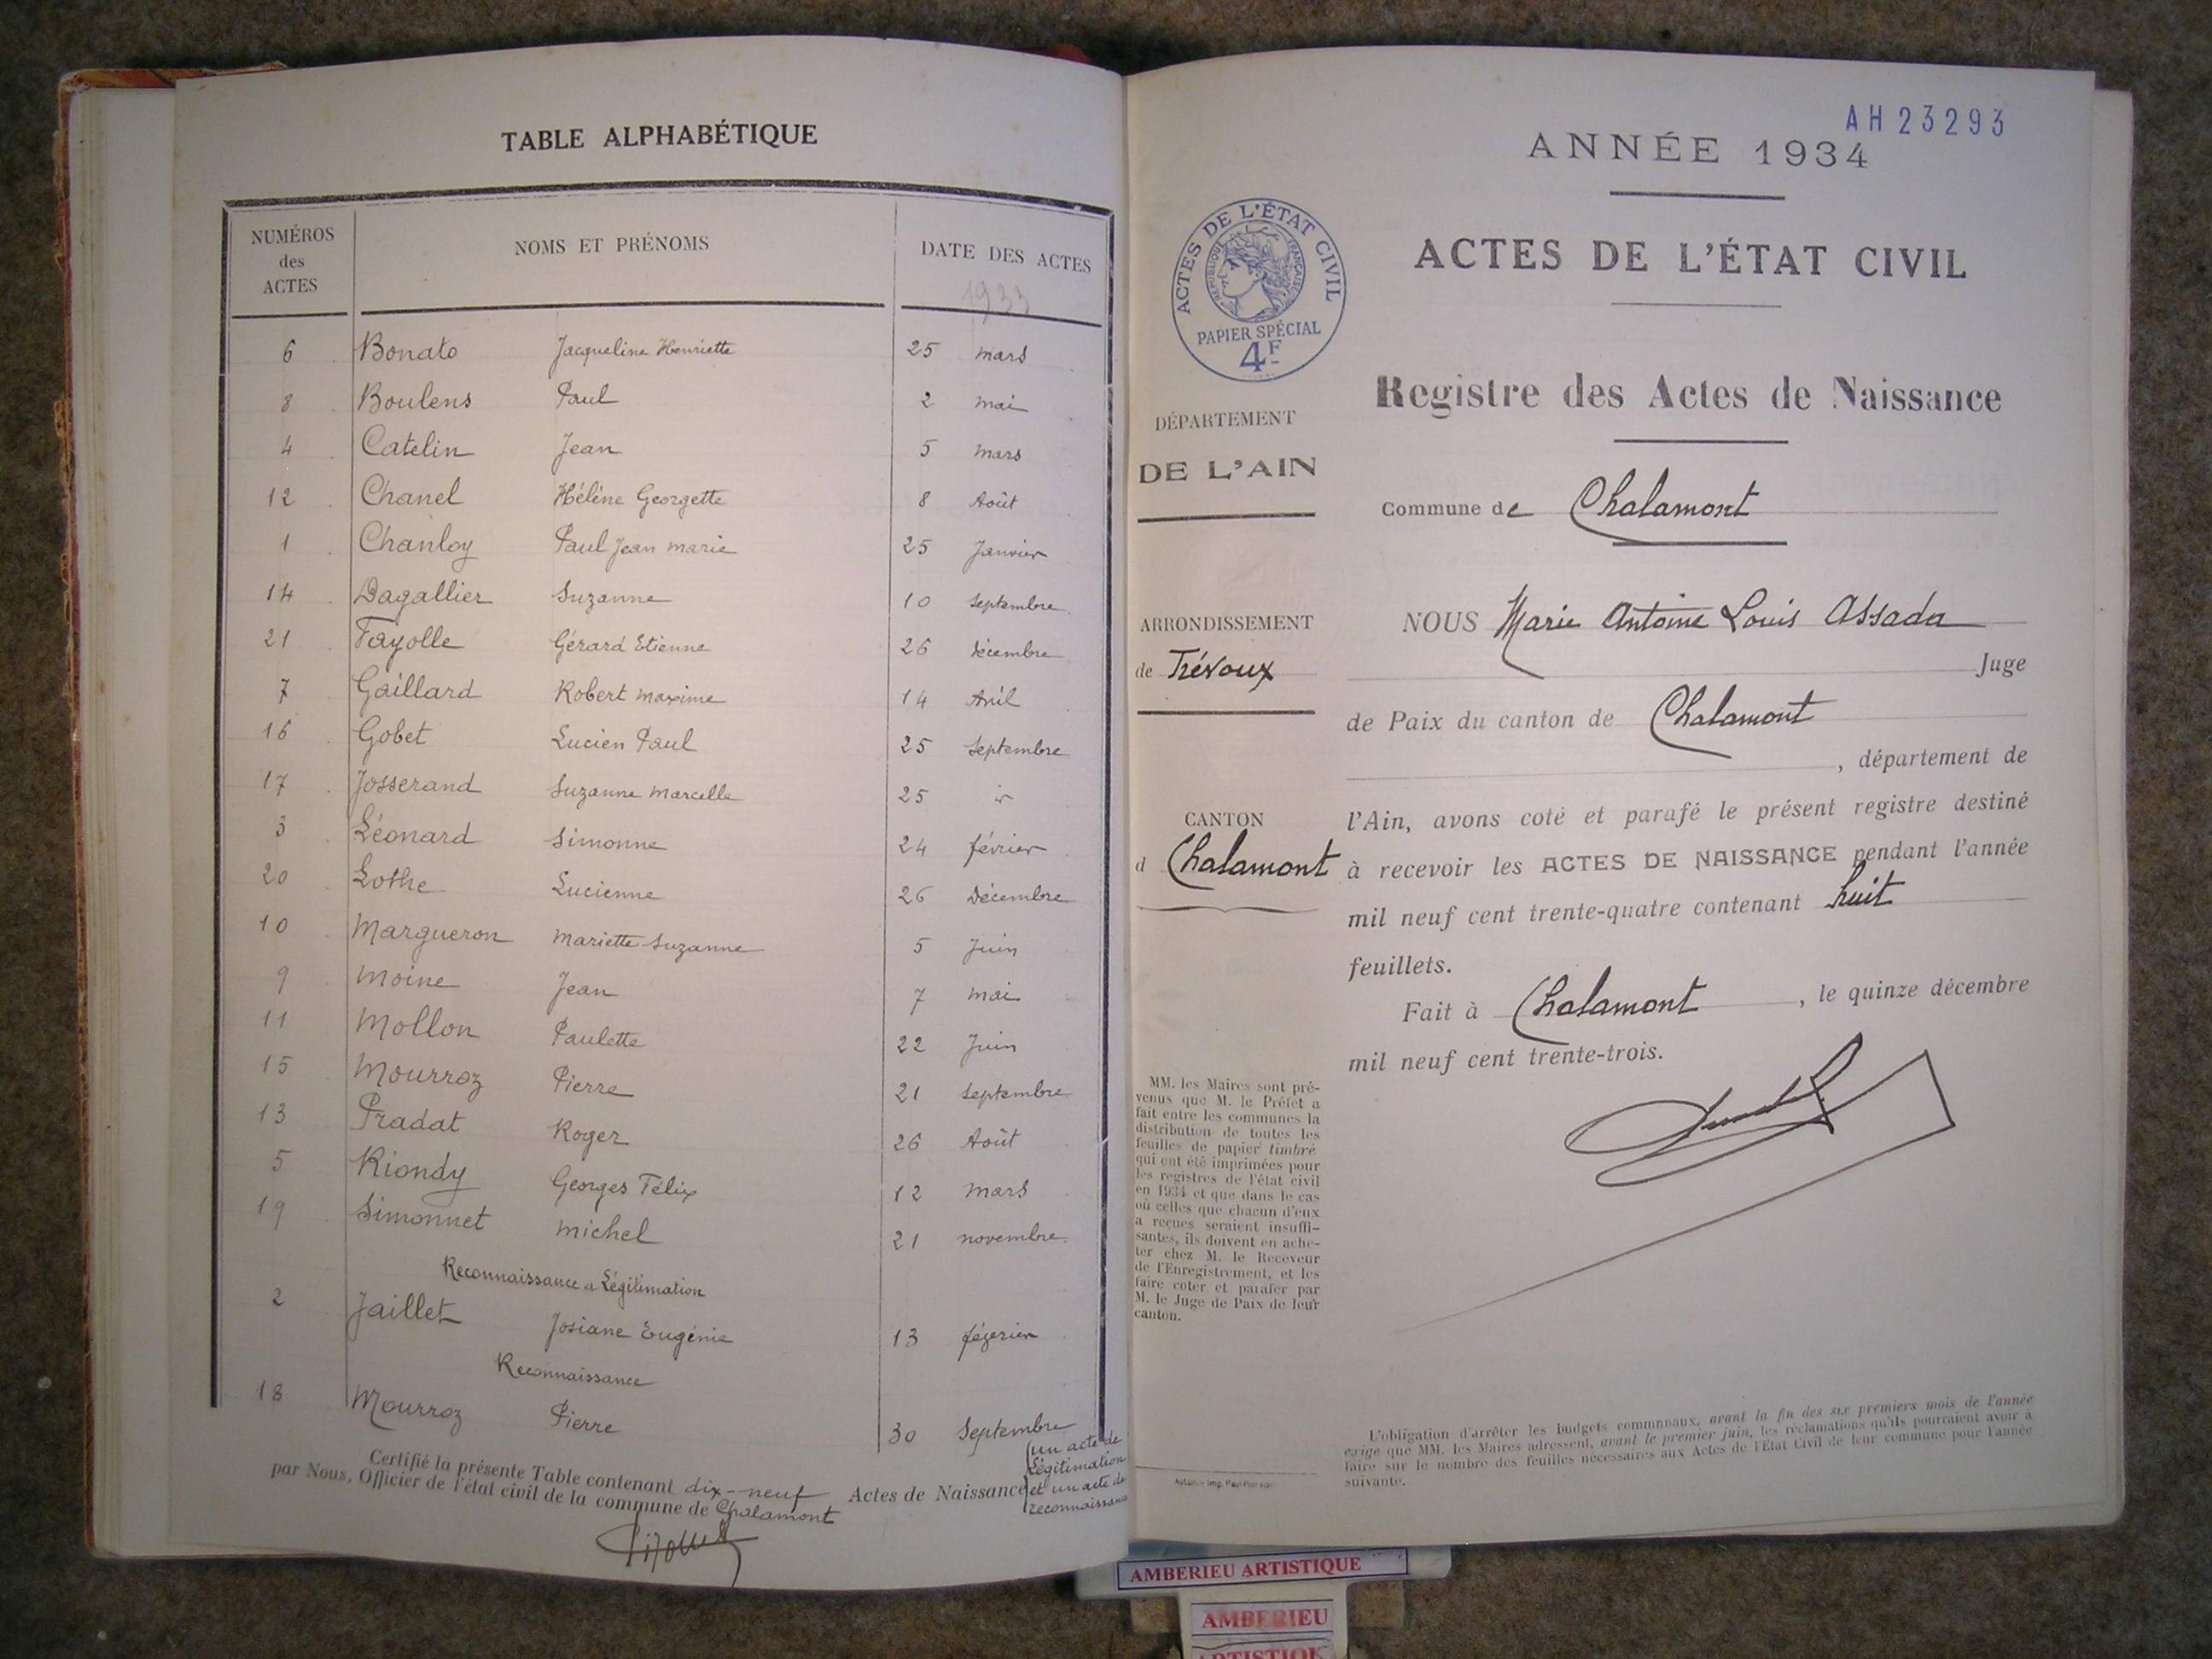 TABLE ALPHABÉTIQUE
NUMÉROS des ACTES
NOMS ET PRÉNOMS
DATE DES ACTES
1933
6 Bonato Jacqueline Henriette 25 mars
8 Boulens Paul 2 mai
4 Catelin Jean 5 mars
12 Chanel Hélène Georgette 8 Août
1 Chanloy Paul Jean Marie 25 Janvier
14 Dagallier Suzanne 10 Septembre
21 Fayolle Gérard Etienne 26 décembre
7 Gaillard Robert Maxime 14 Avril
16 Gobet Lucien Paul 25 Septembre
17 Josserand Suzanne Marcelle 25
3 Léonard Simonne 24 février
20 Lothe Lucienne 26 Décembre
10 Margueron Mariette Suzanne 5 Juin
9 Moine Jean 7 mai
11 Mollon Paulette 22 Juin
15 Mourroz Pierre 21 Septembre
13 Pradat Roger 26 Août
5 Riondy Georges Félix 12 mars
19 Simonnet Michel 21 novembre
Reconnaissance a Légitimation
2 Jaillet Josiane Eugénie 13
Reconnaissance
18 Mourroz Pierre 30 Septembre
Certifié la présente Table contenant dix-neuf Actes de Naissance
par Nous, Officier de l'état civil de la commune de Chalamont
un acte de
Légitimation
et un acte de
reconnaissance
AH23293
ANNÉE 1934
ACTES DE L'ÉTAT CIVIL
RÉPUBLIQUE FRANÇAISE
PAPIER SPÉCIAL
4F
ACTES DE L'ÉTAT CIVIL
Registre des Actes de Naissance
DÉPARTEMENT
DE L'AIN
Commune de Chalamont
ARRONDISSEMENT
de Trévoux
CANTON
d Chalamont
NOUS Marie Antoine Louis Assada
Juge
de Paix du canton de Chalamont
, département de
l'Ain, avons coté et parafé le présent registre destiné
à recevoir les ACTES DE NAISSANCE pendant l'année
mil neuf cent trente-quatre contenant huit
feuillets.
Fait à Chalamont, le quinze décembre
mil neuf cent trente-trois.
MM. les Maires sont pré-
venus que M. le Préfet a
fait entre les communes la
distribution de toutes les
feuilles de papier timbré
qui ont été imprimées pour
les registres de l'état civil
en 1934 et que dans le cas
où celles que chacun d'eux
a reçues seraient insuffi-
santes, ils doivent en ache-
ter chez M. le Receveur
de l'Enregistrement, et les
faire coter et parafer par
M. le Juge de Paix de leur
canton.
L'obligation d'arrêter les budgets communaux, avant la fin des six premiers mois de l'année
exige que MM. les Maires adressent, avant le premier juin, les réclamations qu'ils pourraient avoir à
faire sur le nombre des feuilles nécessaires aux Actes de l'État Civil de leur commune pour l'année
suivante.
AMBERIEU ARTISTIQUE
AMBERIEU